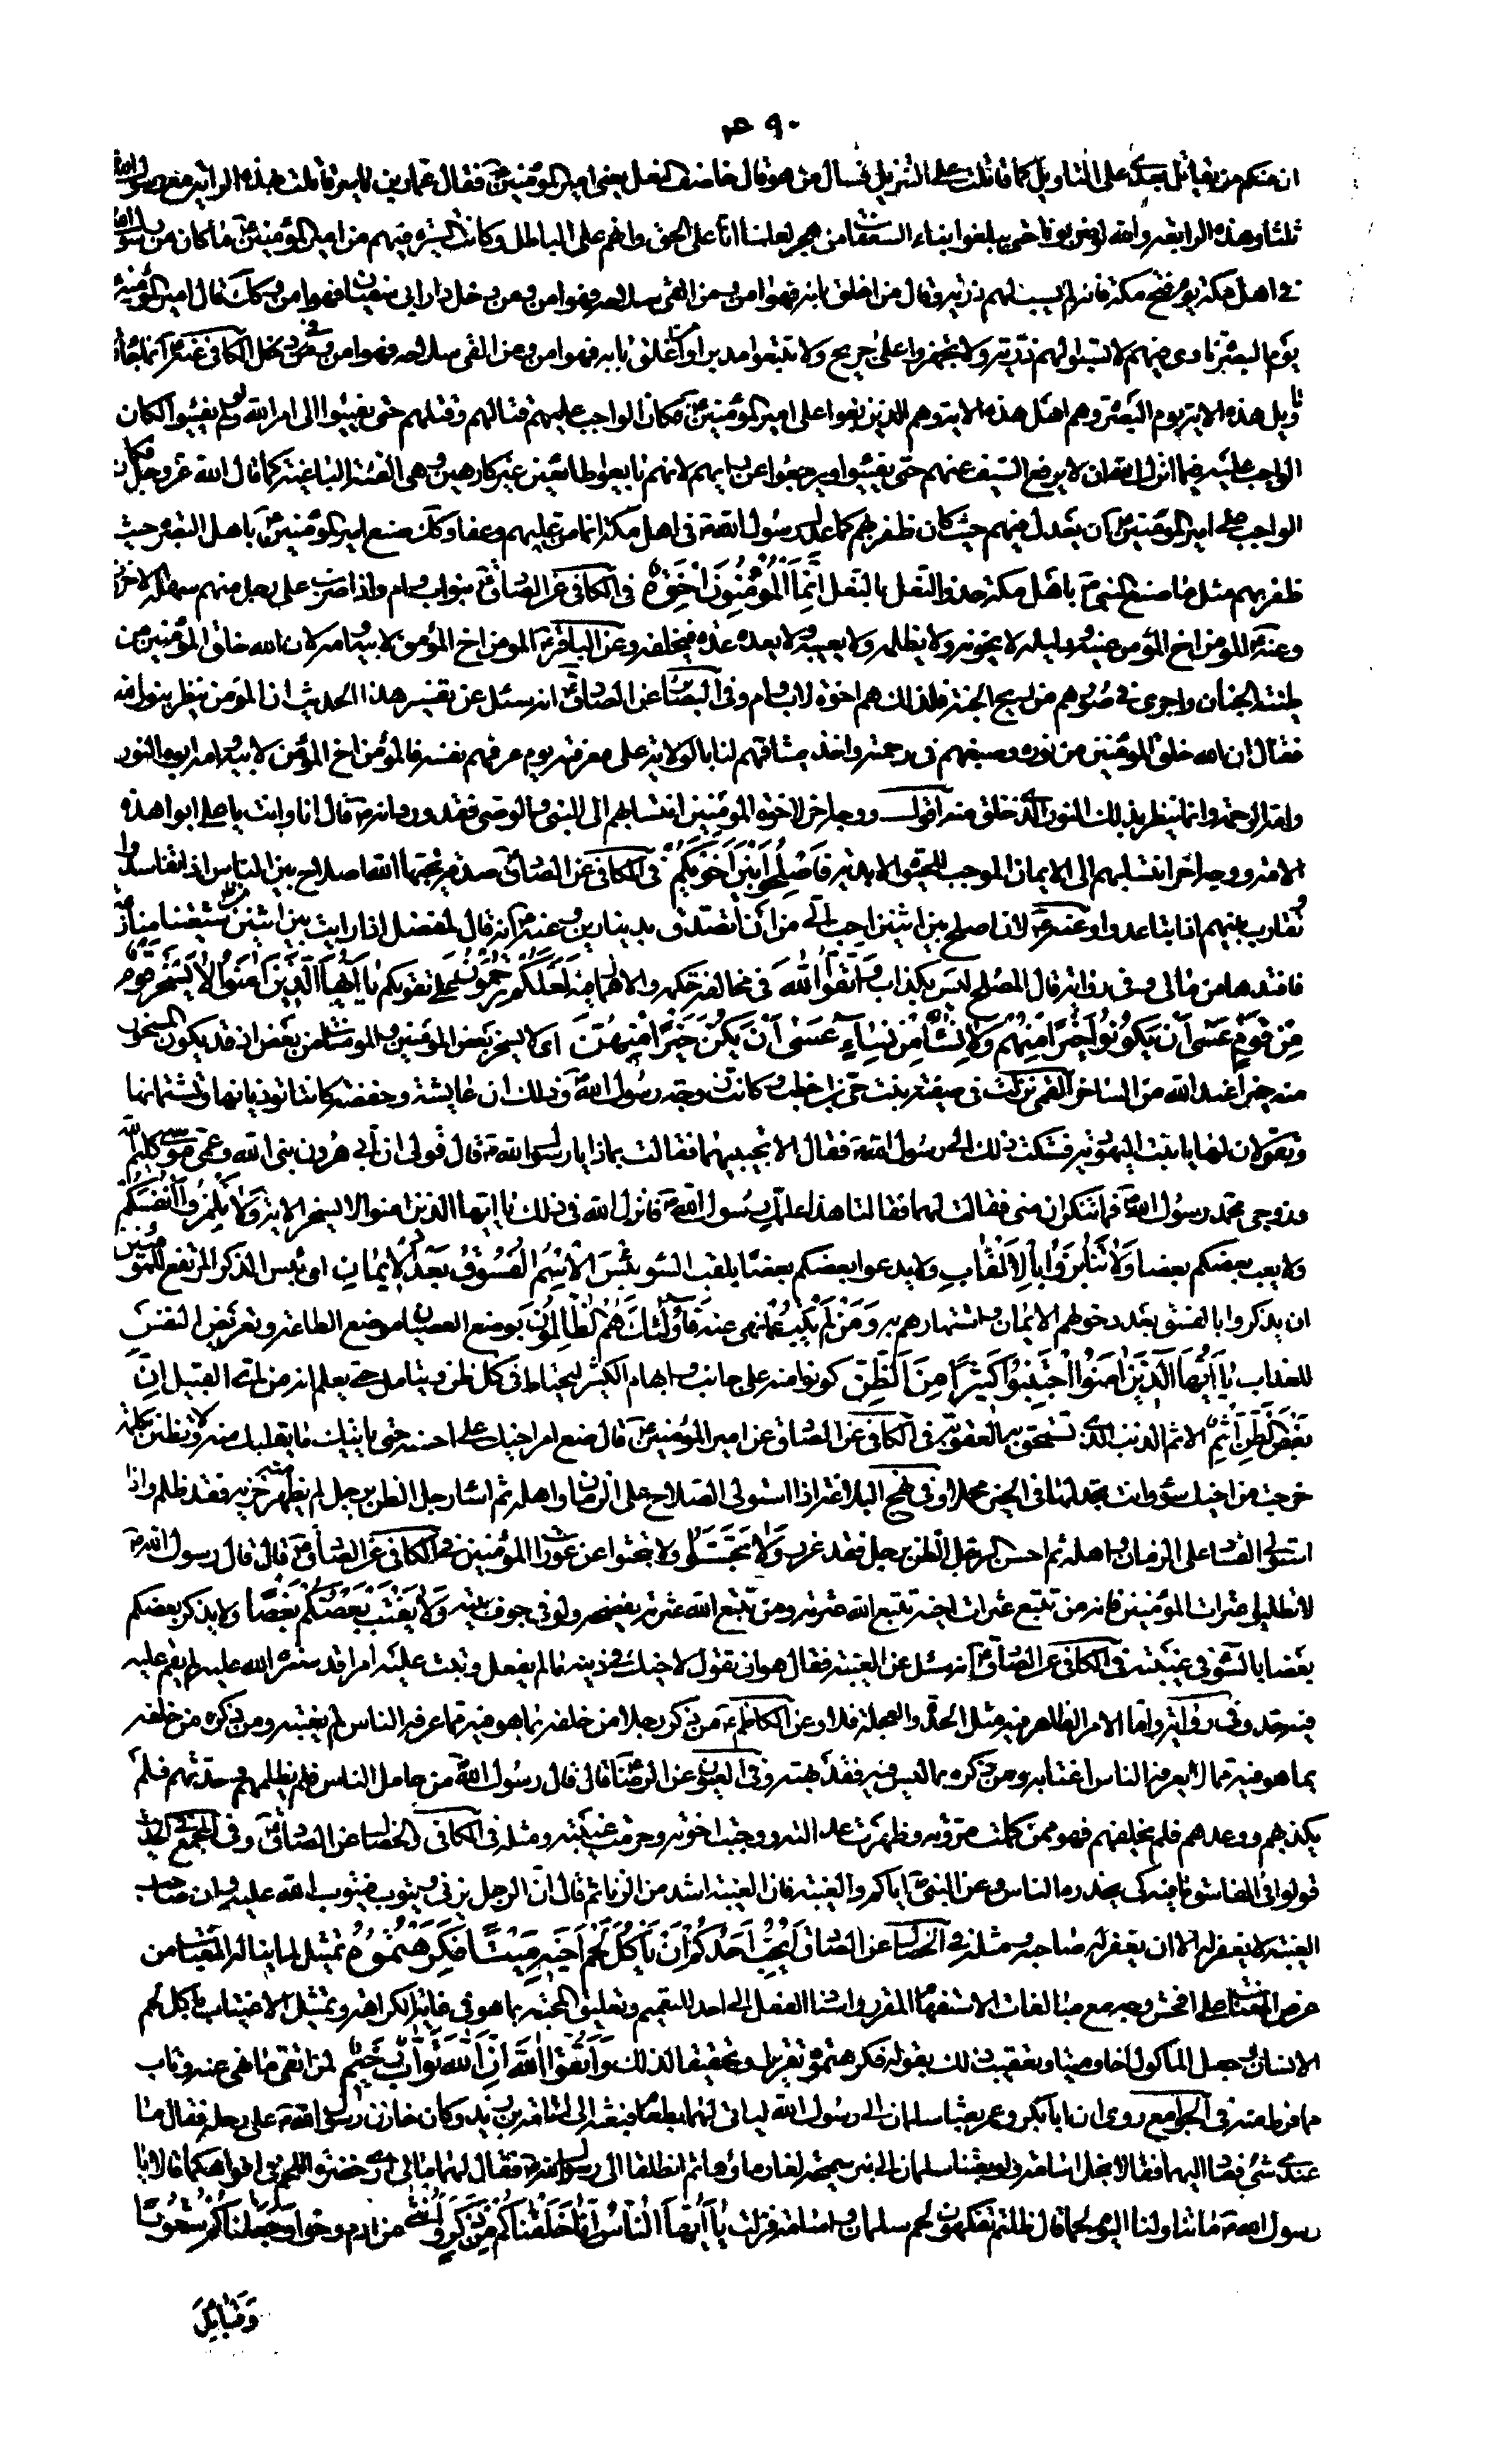 ٤٩٠
ان منكم من يقاتل بعدى على التاويل كما قاتلت على التنزيل فسئل من هو قال خاصف النعل يعنى امير المؤمنينؑ فقال عمار بن ياسر قاتلت بهذه الراية مع رسول اللهؐ
ثلثا وهذه الرابعة والله لو ضربونا حتى يبلغوا بنا السعفات من هجر لعلمنا انا على الحق وانهم على الباطل وكانت السيرة فيهم من امير المؤمنينؑ ما كان من رسول اللهؐ
فى اهل مكة يوم فتح مكة فانه لم يسب لهم ذرية وقال من اغلق بابه فهو امن ومن القى سلاحه فهو امن ومن دخل دار ابى سفيان فهو امن وكذلك قال امير المؤمنينؑ
يوم البصرة نادى فيهم لا تسبوا لهم ذرية ولا تجهزوا على جريح ولا تتبعوا مدبرا ومن اغلق بابه فهو امن ومن القى سلاحه فهو امن وفى الكافى عنهؑ انما جاء
تاويل هذه الاية يوم البصرة وهم اهل هذه الاية وهم الذين بغوا على امير المؤمنينؑ فكان الواجب عليه قتالهم وقتلهم حتى يفيئوا الى امر الله ولو لم يفيئوا لكان
الواجب عليه فيما انزل الله ان لا يرفع السيف عنهم حتى يفيئوا ويرجعوا عن رايهم لانهم بايعوا طائعين غير كارهين وهى الفئة الباغية كما قال الله عز وجل فكان
الواجب على امير المؤمنينؑ ان يعدل فيهم حيث كان ظفر بهم كما عدل رسول اللهؐ فى اهل مكة انما من عليهم وعفا وكذلك صنع امير المؤمنينؑ باهل البصرة حيث
ظفر بهم مثل ما صنع النبىؐ باهل مكة حذو النعل بالنعل اِنَّمَا الْمُؤْمِنُونَ اِخْوَةٌ فى الكافى عن الصادقؑ بنو اب وام واذا ضرب على رجل منهم سهر له الاخرون
وعنهؑ المؤمن اخ المؤمن عينه ودليله لا يخونه ولا يظلمه ولا يعيبه ولا يعده عدة فيخلفه وعن الباقرؑ المؤمن اخ المؤمن لابيه وامه لان الله خلق المؤمنين من
طينة الجنان واجرى فى صورهم من ريح الجنة فلذلك هم اخوة لاب وام وفى البصائر عن الصادقؑ انه سئل عن تفسير هذا الحديث ان المؤمن ينظر بنور الله
فقال ان الله خلق المؤمنين من نوره وصبغهم فى رحمته واخذ ميثاقهم لنا بالولاية على معرفته يوم عرفهم نفسه فالمؤمن اخ المؤمن لابيه وامه ابوه النور
وامه الرحمة وانما ينظر بذلك النور الذى خلق منه اقول ووجه اخر لاخوة المؤمنين انتسابهم الى النبى والوصى فقد ورد انهؐ قال انا وانت يا على ابوا هذه
الامة ووجه اخر انتسابهم الى الايمان الموجب للحيوة الابدية فَاَصْلِحُوا بَيْنَ اَخَوَيْكُمْ فى الكافى عن الصادقؑ صدقة يحبها الله اصلاح بين الناس اذا تفاسدوا
وتقارب بينهم اذا تباعدوا وعنهؑ لان اصلح بين اثنين احب الى من ان اتصدق بدينارين وعنهؑ انه قال لمفضل اذا رايت بين اثنين من شيعتنا منازعة
فافتدها من مالى وفى رواية قال المصلح ليس بكذاب وَاتَّقُوا اللهَ فى مخالفة حكمه والاهمال فيه لَعَلَّكُمْ تُرْحَمُونَ على تقويكم يَا اَيُّهَا الَّذِينَ اٰمَنُوا لَا يَسْخَرْ قَوْمٌ
مِنْ قَوْمٍ عَسٰى اَنْ يَكُونُوا خَيْرًا مِنْهُمْ وَلَا نِسَاءٌ مِنْ نِسَاءٍ عَسٰى اَنْ يَكُنَّ خَيْرًا مِنْهُنَّ اى لا يسخر بعض المؤمنين والمؤمنات من بعض اذ قد يكون المسخور
منه خيرا عند الله من الساخر القمى نزلت فى صفية بنت حى بن اخطب وكانت زوجة رسول اللهؐ وذلك ان عايشة وحفصة كانتا تؤذيانها وتشتمانها
وتقولان لها يا بنت اليهودية فشكت ذلك الى رسول اللهؐ فقال الا تجيبينهما فقالت بماذا يا رسول اللهؐ قال قولى ان ابى هرون نبى الله وعمى موسى كليم الله
وزوجى محمد رسول اللهؐ فما تنكران منى فقالت لهما فقالتا هذا علمك رسول اللهؐ فانزل الله فى ذلك يا ايها الذين امنوا لا يسخر الاية وَلَا تَلْمِزُوا اَنْفُسَكُمْ
ولا يعب بعضكم بعضا وَلَا تَنَابَزُوا بِالْاَلْقَابِ ولا يدعوا بعضكم بعضا بلقب السوء بِئْسَ الْاِسْمُ الْفُسُوقُ بَعْدَ الْاِيمَانِ اى بئس الذكر المرتفع للمؤمنين
ان يذكروا بالفسق بعد دخولهم الايمان واشتهارهم به وَمَنْ لَمْ يَتُبْ عما نهى عنه فَاُولٰئِكَ هُمُ الظَّالِمُونَ بوضع العصيان موضع الطاعة وتعريض النفس
للعذاب يَا اَيُّهَا الَّذِينَ اٰمَنُوا اجْتَنِبُوا كَثِيرًا مِنَ الظَّنِّ كونوا منه على جانب وابهام الكثير ليحتاط فى كل ظن ويتامل حتى يعلم انه من اى القبيل اِنَّ
بَعْضَ الظَّنِّ اِثْمٌ الاثم الذنب الذى تستحق به العقوبة فى الكافى عن الصادق عن امير المؤمنينؑ قال ضع امر اخيك على احسنه حتى ياتيك ما يقلبك منه ولا تظنن بكلمة
خرجت من اخيك سوء وانت تجد لها فى الخير محملا وفى نهج البلاغة اذا استولى الصلاح على الزمان واهله ثم اساء رجل الظن برجل لم يظهر منه خزية فقد ظلم واذا
استولى الفساد على الزمان واهله ثم احسن الرجل الظن برجل فقد غرر وَلَا تَجَسَّسُوا ولا تبحثوا عن عورات المؤمنين فى الكافى عن الصادقؑ قال قال رسول اللهؐ
لا تطلبوا عثرات المؤمنين فانه من تتبع عثرات اخيه تتبع الله عثرته ومن تتبع الله عثرته يفضحه ولو فى جوف بيته وَلَا يَغْتَبْ بَعْضُكُمْ بَعْضًا ولا يذكر بعضكم
بعضا بالسوء فى غيبته فى الكافى عن الصادقؑ انه سئل عن الغيبة فقال هو ان تقول لاخيك فى دينه ما لم يفعل وتبث عليه امرا قد ستره الله عليه لم يقم عليه
فيه حد وفى رواية واما الامر الظاهر فيه مثل الحدة والعجلة فلا وعن الكاظمؑ من ذكر رجلا من خلفه بما هو فيه مما عرفه الناس لم يغتبه ومن ذكره من خلفه
بما هو فيه مما لا يعرفه الناس اغتابه ومن ذكره بما ليس فيه فقد بهته وفى العيون عن الرضاؑ قال قال رسول اللهؐ من عامل الناس فلم يظلمهم وحدثهم فلم
يكذبهم ووعدهم فلم يخلفهم فهو ممن كملت مروته وظهرت عدالته ووجبت اخوته وحرمت غيبته ومثله فى الكافى والخصال عن الصادقؑ وفى المجمع فى الحديث
قولوا فى الفاسق ما فيه كى يحذره الناس وعن النبىؐ اياكم والغيبة فان الغيبة اشد من الزنا ثم قال ان الرجل يزنى ويتوب فيتوب الله عليه وان صاحب
الغيبة لا يغفر له الا ان يغفر له صاحبه ومثله فى الخصال عن الصادق اَيُحِبُّ اَحَدُكُمْ اَنْ يَاْكُلَ لَحْمَ اَخِيهِ مَيْتًا فَكَرِهْتُمُوهُ تمثيل لما يناله المغتاب من
عرض المغتاب على افحش وجه مع مبالغات الاستفهام المقرر واسناد الفعل الى احد للتعميم وتعليق المحبة بما هو فى غاية الكراهة وتمثيل الاغتياب باكل لحم
الانسان وجعل الماكول اخا وميتا وتعقيب ذلك بقوله فكرهتموه تقريرا وتحقيقا لذلك وَاتَّقُوا اللهَ اِنَّ اللهَ تَوَّابٌ رَحِيمٌ لمن اتقى ما نهى عنه وتاب
مما فرط منه فى الجوامع روى ان ابا بكر وعمر بعثا سلمان الى رسول الله لياتى لهما بطعام فبعثه الى اسامة بن زيد وكان خازن رسول اللهؐ على رحله فقال ما
عندى شئ فعاد اليهما فقالا بخل اسامة ولو بعثنا سلمان الى بئر سميحة لغار ماؤها ثم انطلقا الى رسول اللهؐ فقال لهما مالى ارى خضرة اللحم فى افواهكما قالا يا
رسول اللهؐ ما تناولنا اليوم لحما قال ظلتم تفكهون لحم سلمان واسامة فنزلت يَا اَيُّهَا النَّاسُ اِنَّا خَلَقْنَاكُمْ مِنْ ذَكَرٍ وَاُنْثٰى من ادم وحوا وَجَعَلْنَاكُمْ شُعُوبًا
وَقَبَائِلَ